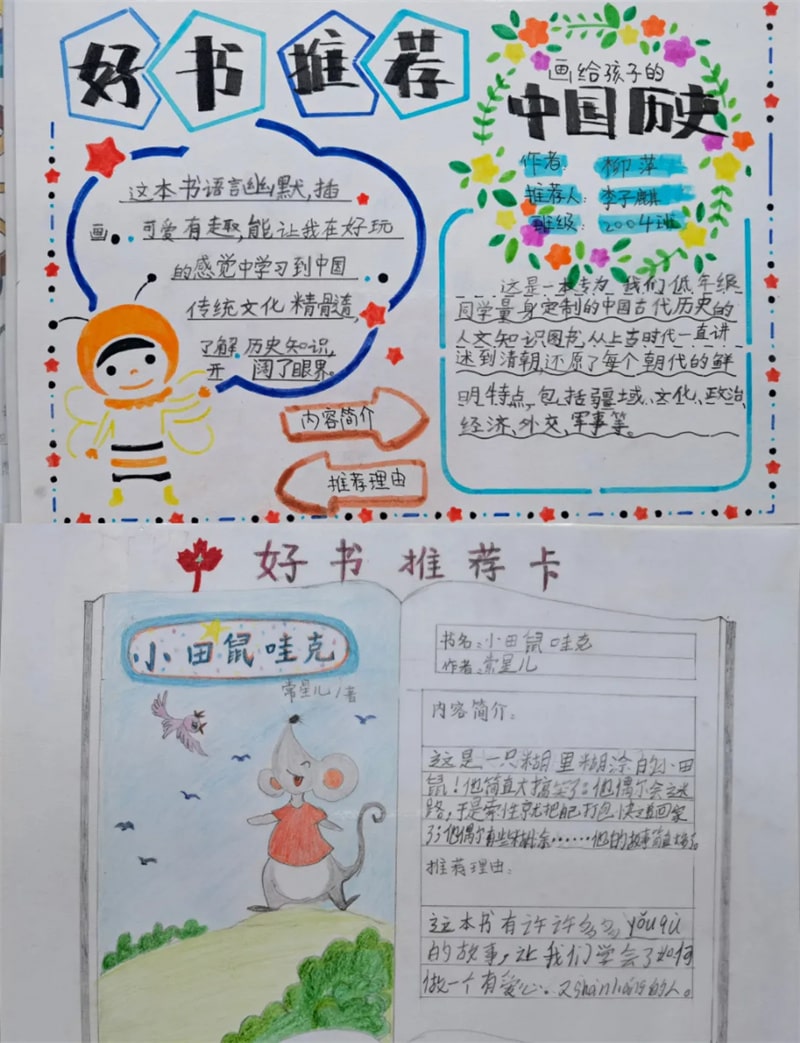 好书推荐
画给孩子的
中国历史
作者: 柳萍
推荐人: 李子麒
班级: 2004班
这本书语言幽默,插
画可爱有走趣,能让我在好玩
的感觉中学习到中国
传统文化精髓,
了解历史知识,
开阔了眼界。
内容简介
推荐理由
这是一本专为我们低年级
同学量身定制的中国古代历史的
人文知识图书,从上古时代一直讲
述到清朝,还原了每个朝代的鲜
明特点,包括疆域、文化、政治、
经济、外交、军事等。
好书推荐卡
小田鼠哇克
常星儿/著
书名:小田鼠哇克
作者:常星儿
内容简介:
这是一只糊里糊涂的小田
鼠!他简直太搞笑了。他偶尔会
路,于是索性就把自己打包快递回家
了!他偶尔有些……他的故事简直
推荐理由:
这本书有许许多多yǒuqù
的故事,让我们学会了如何
做一个有爱心.又shànliáng的人。